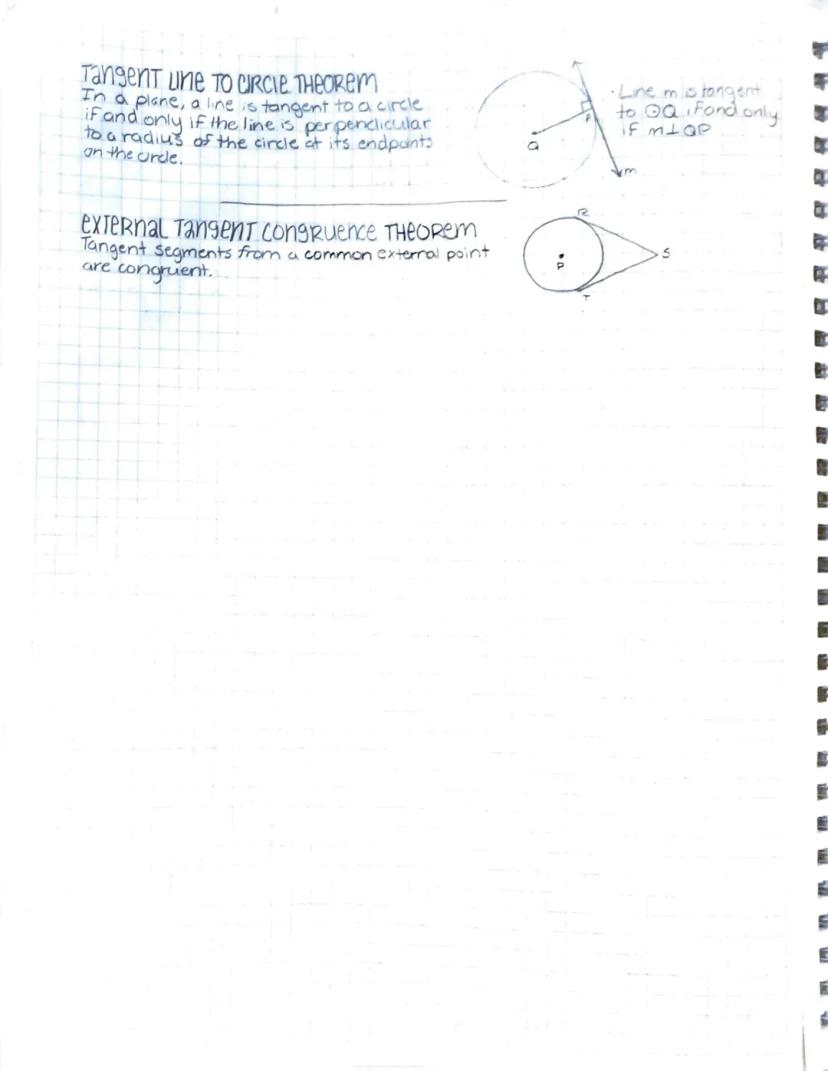 Tangent Line to Circle Theorem
In a plane, a line is tangent to a circle
if and only if the line is perpendicular
to a radius of the circle at its endpoints
on the circle.
· Line m is tangent
to ⊙Q if and only
if m⊥QP
P
Q
m
External Tangent Congruence Theorem
Tangent segments from a common external point
are congruent.
R
S
P
T